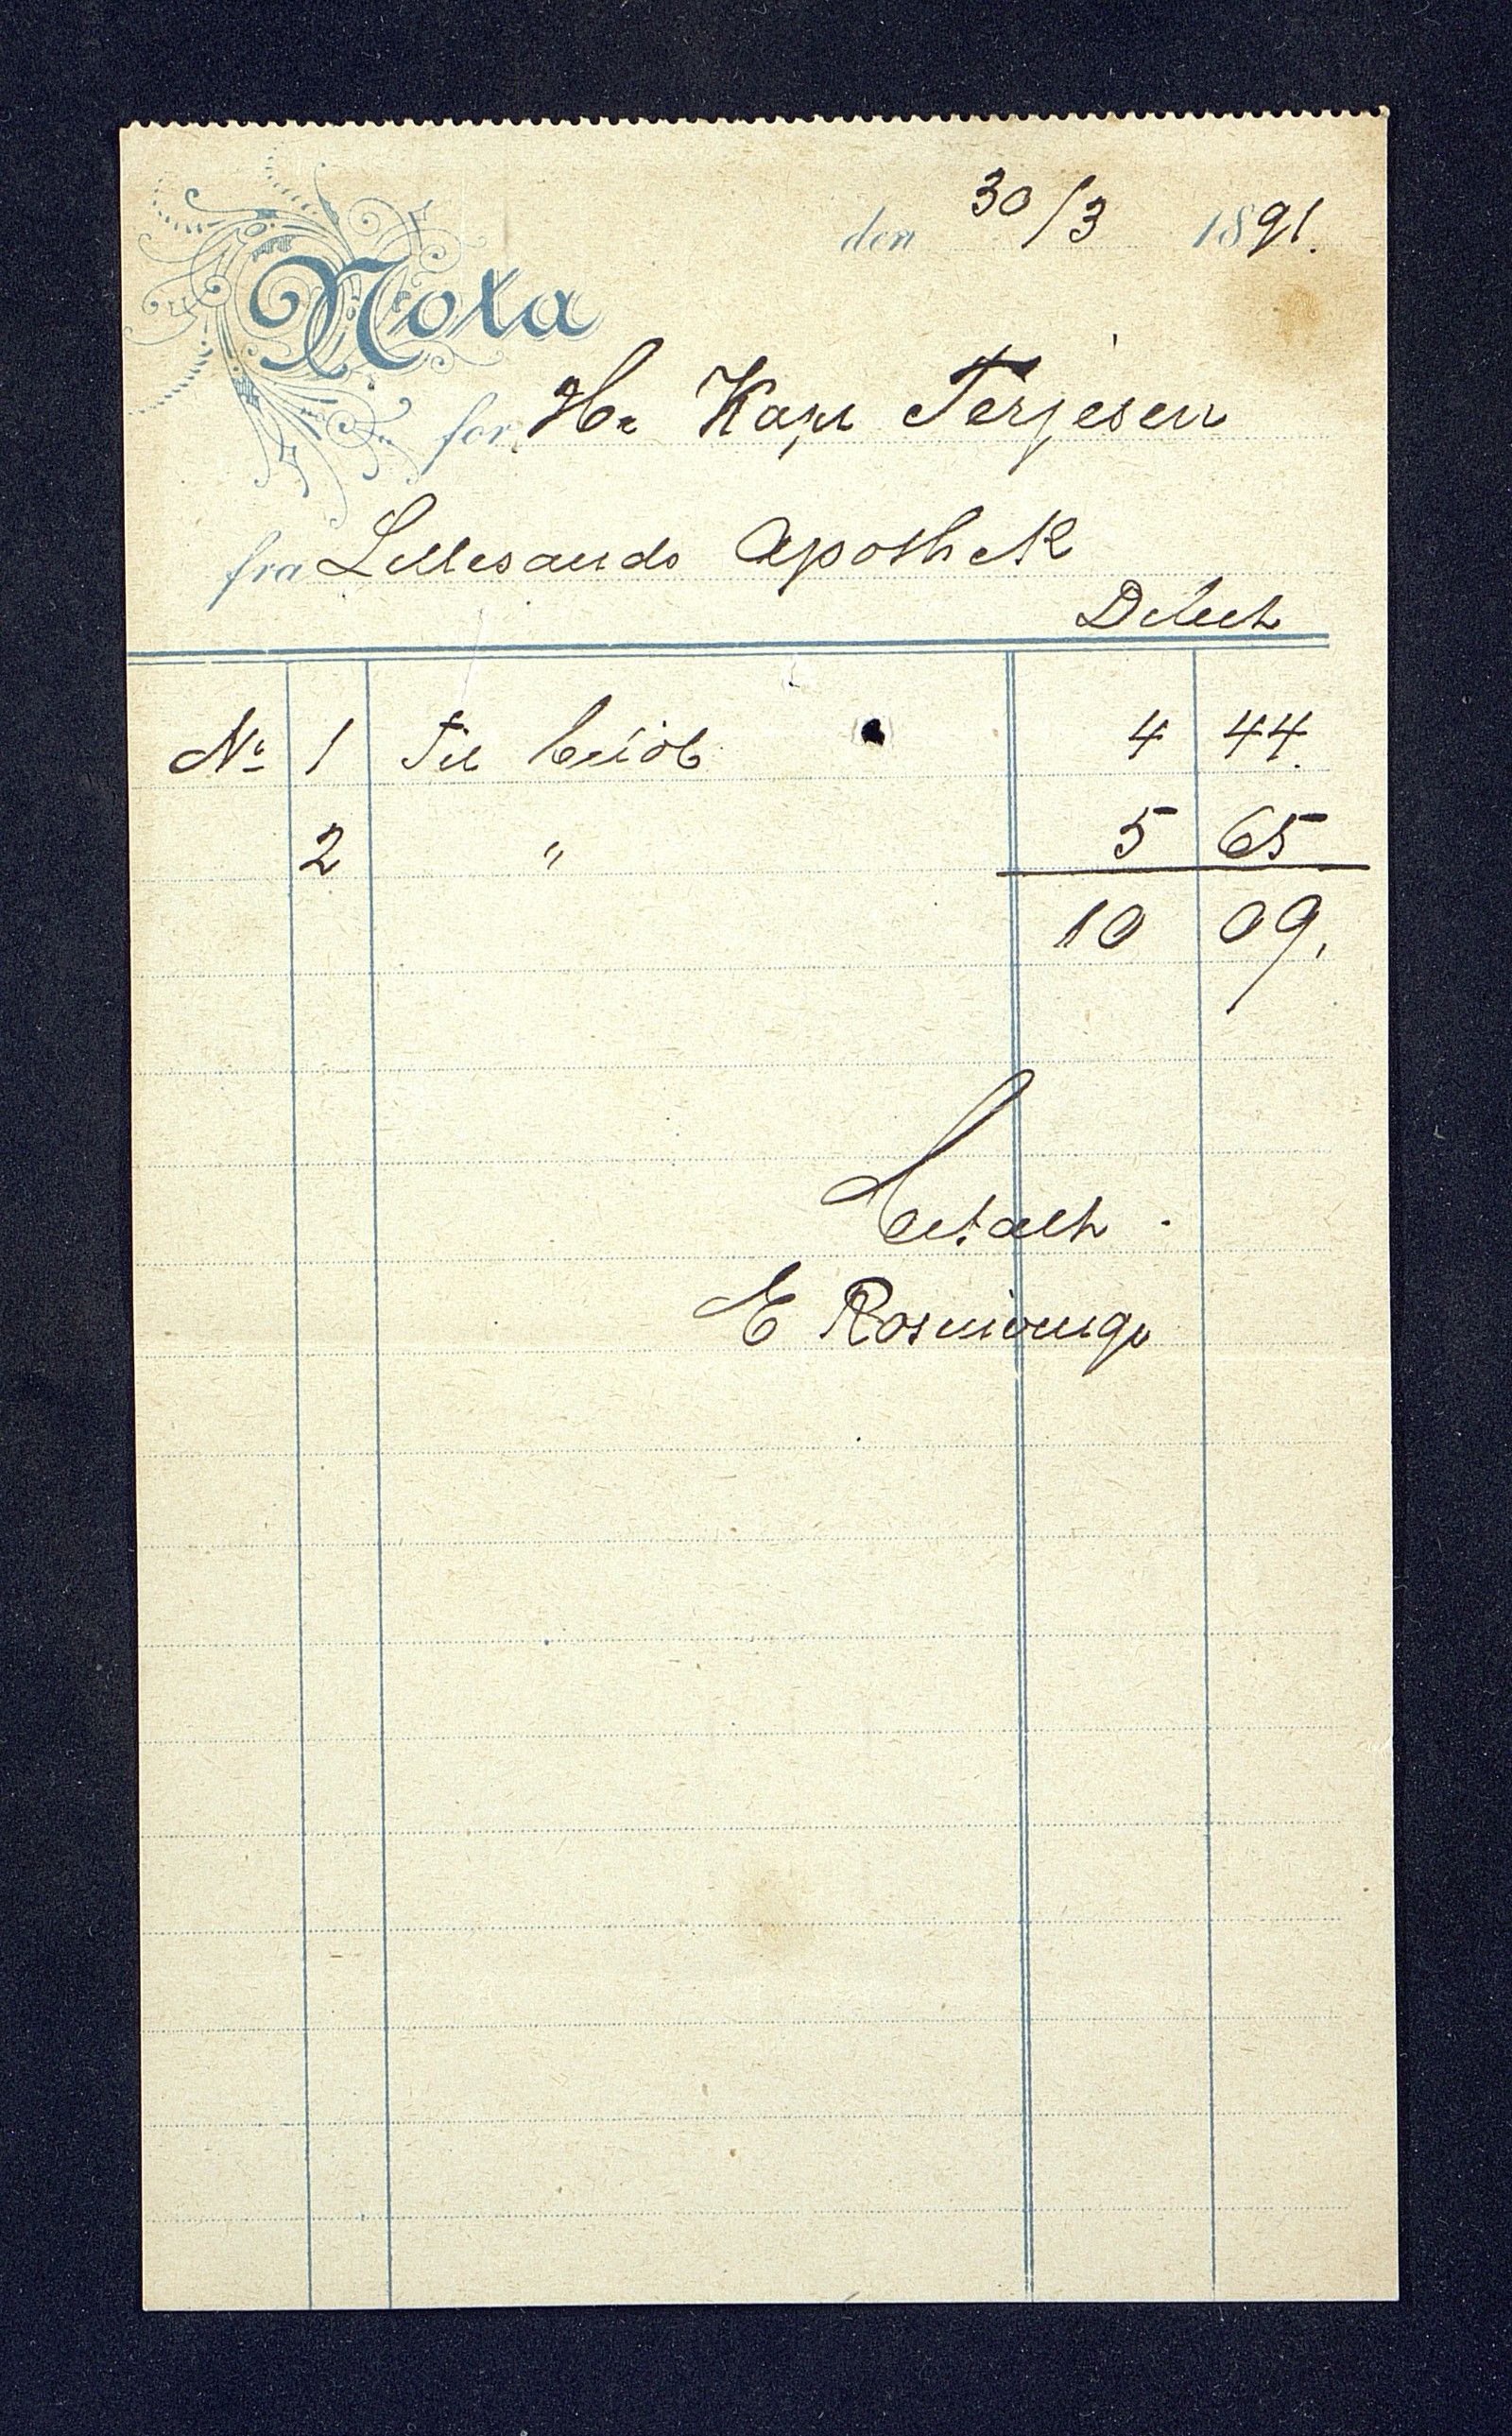 den 30/3 1891.
Nota
for Hr Kapt Terjesen
fra Lillesands Apothek
Debet
No 1 Til Beløb 4 44.
2 " 5 65
10 09.
Betalt.
E